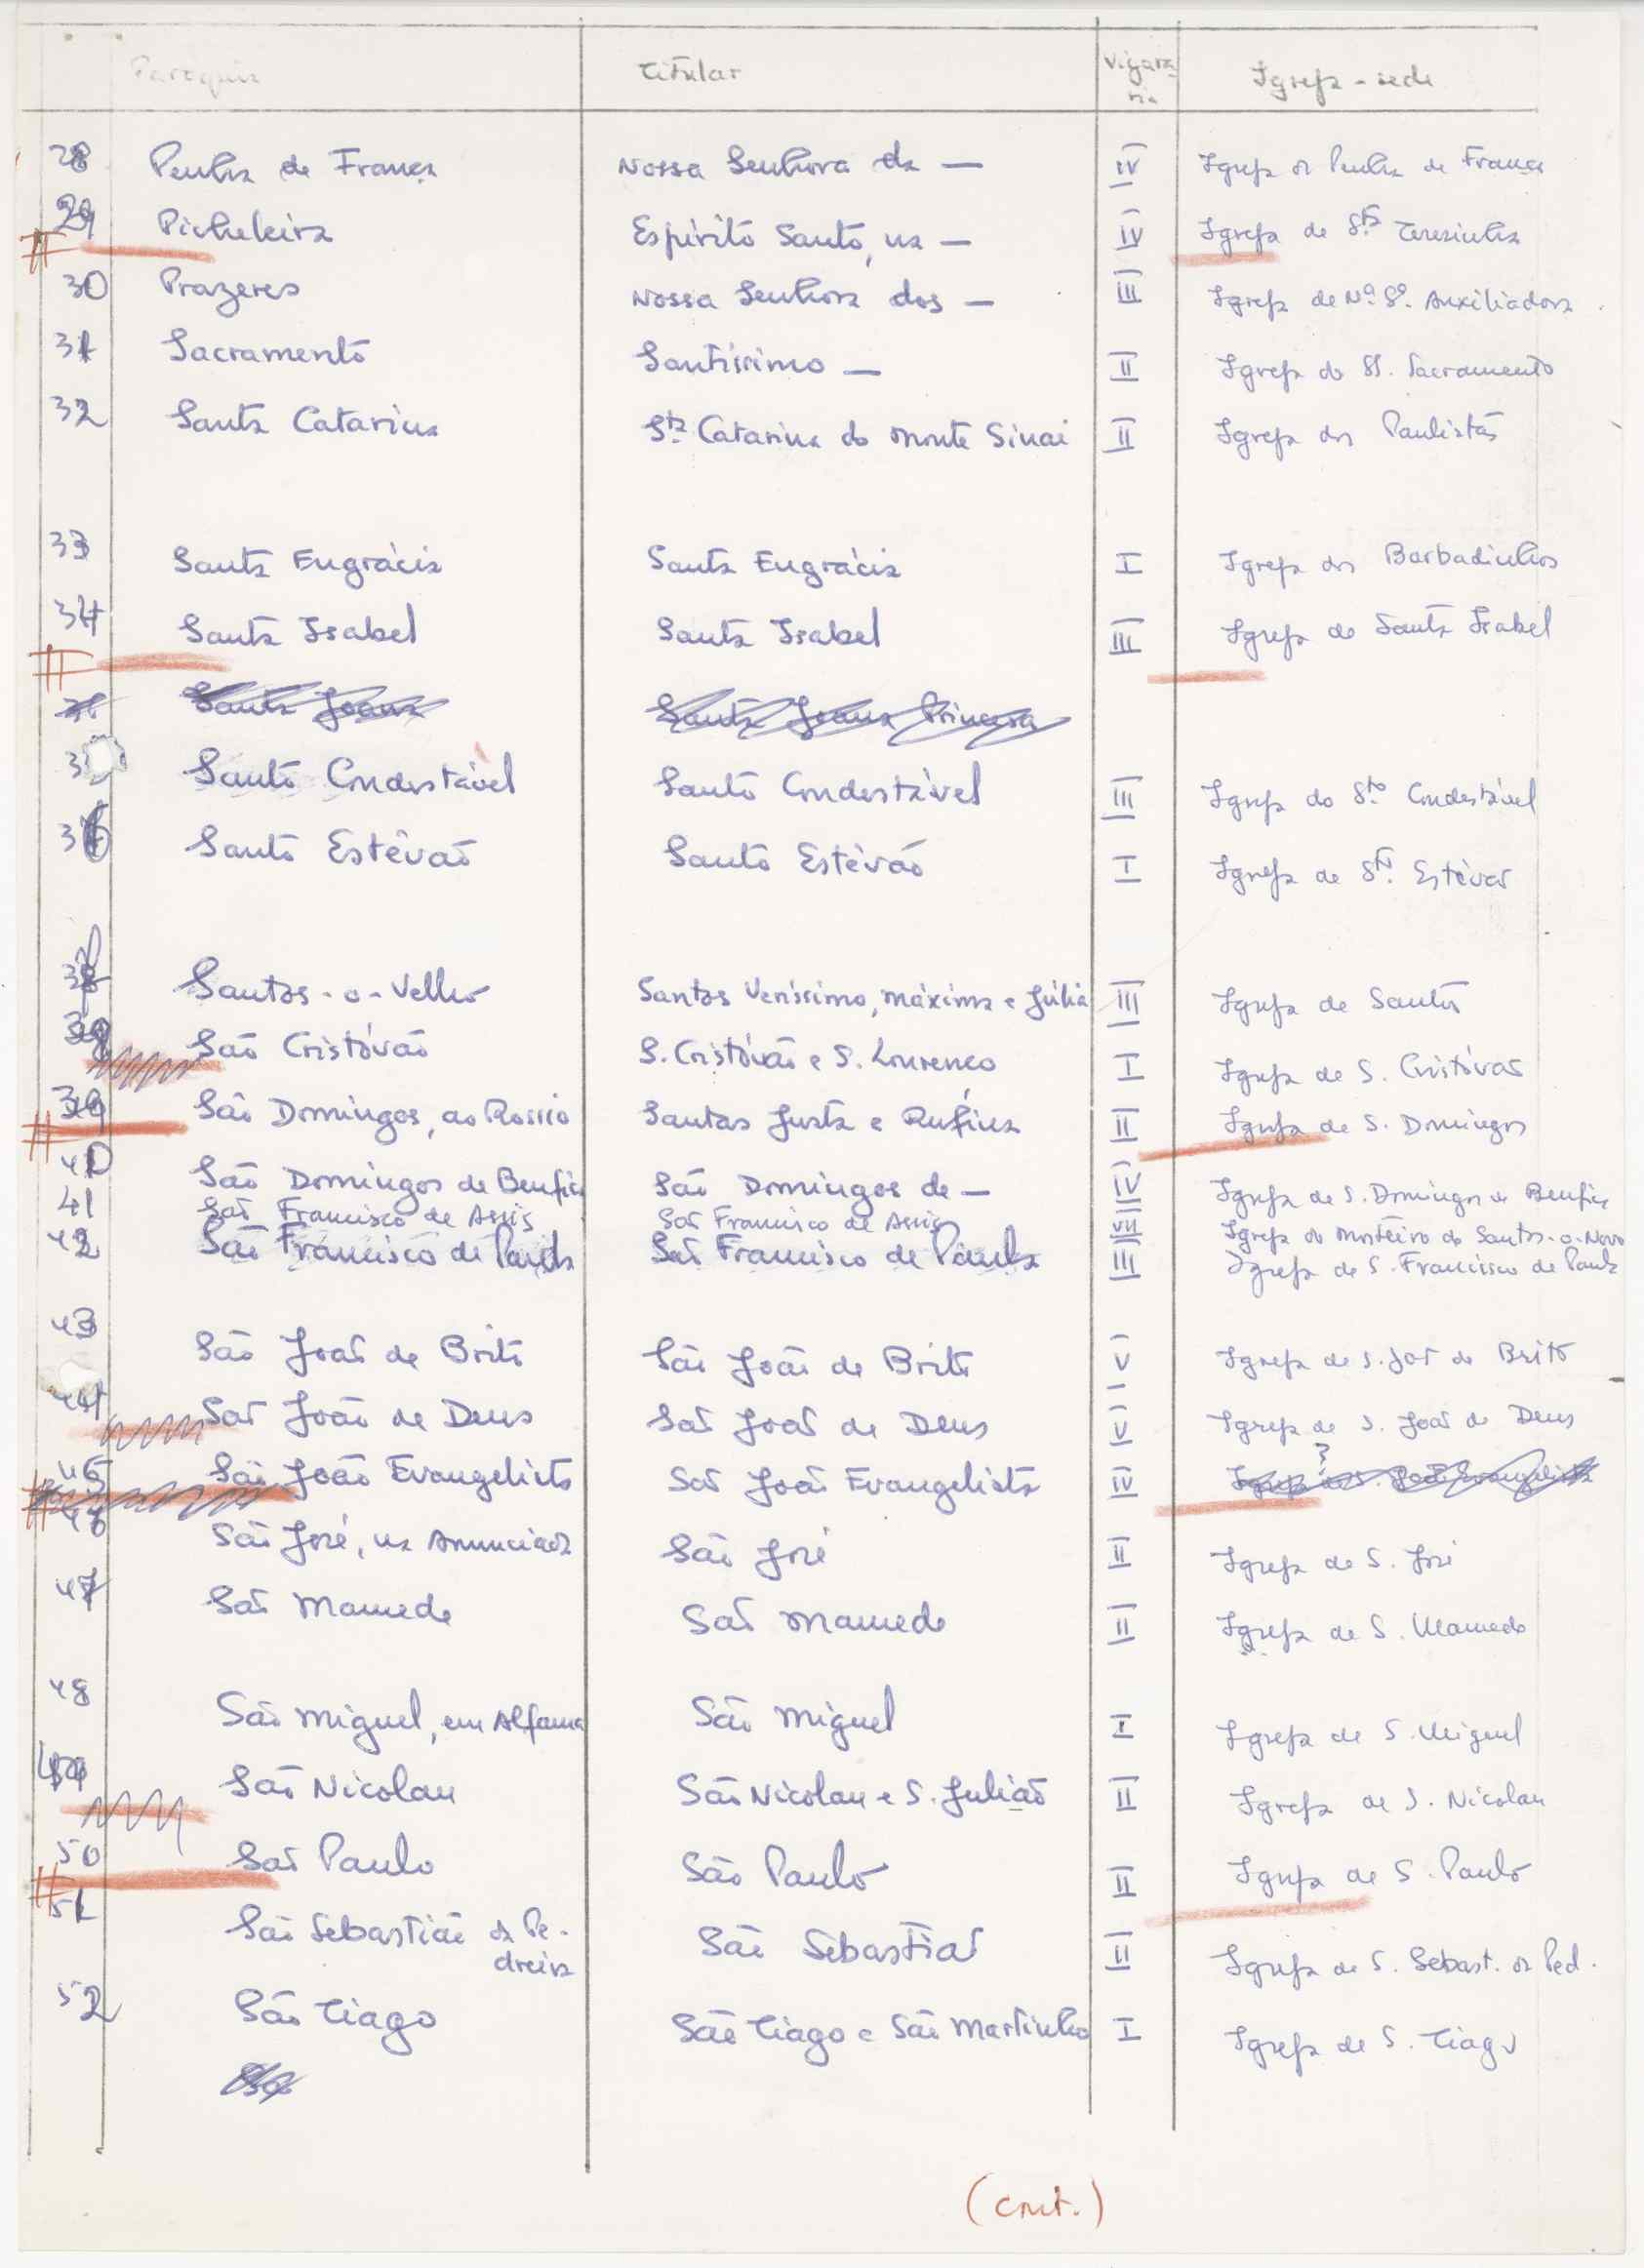 Paroquia Titular Vigara-ria Igreja-sede
28 Penha de França Nossa Senhora da — IV Igreja da Penha de França
29 Picheleira Espírito Santo, na — IV Igreja de Stª Teresinha
30 Prazeres Nossa Senhora dos — III Igreja de Nª Sª Auxiliadora
31 Sacramento Santíssimo — II Igreja do SS. Sacramento
32 Santa Catarina Stª Catarina do Monte Sinai II Igreja dos Paulistas
33 Santa Engrácia Santa Engrácia I Igreja dos Barbadinhos
34 Santa Isabel Santa Isabel III Igreja de Santa Isabel
Santa Joana Santa Joana Princesa
Santo Condestável Santo Condestável III Igreja do Stº Condestável
36 Santo Estêvão Santo Estêvão I Igreja de Stº Estêvão
37 Santos-o-Velho Santos Veríssimo, Máxima e Júlia III Igreja de Santos
38 São Cristóvão S. Cristóvão e S. Lourenço I Igreja de S. Cristóvão
39 São Domingos, ao Rossio Santas Justa e Rufina II Igreja de S. Domingos
40 São Domingos de Benfica São Domingos de — IV Igreja de S. Domingos de Benfica
41 São Francisco de Assis São Francisco de Assis VII Igreja do Mosteiro de Santos-o-Novo
42 São Francisco de Paula São Francisco de Paula III Igreja de S. Francisco de Paula
43 São João de Brito São João de Brito V Igreja de S. João de Brito
44 São João de Deus São João de Deus V Igreja de S. João de Deus
?
45 São João Evangelista São João Evangelista IV Igreja de S. João Evangelista
46 São José, na Anunciada São José II Igreja de S. José
47 São Mamede São Mamede II Igreja de S. Mamede
48 São Miguel, em Alfama São Miguel I Igreja de S. Miguel
49 São Nicolau São Nicolau e S. Julião II Igreja de S. Nicolau
50 São Paulo São Paulo II Igreja de S. Paulo
51 São Sebastião da Pe-
dreira São Sebastião II Igreja de S. Sebast. da Ped.
52 São Tiago São Tiago e São Martinho I Igreja de S. Tiago
(cont.)